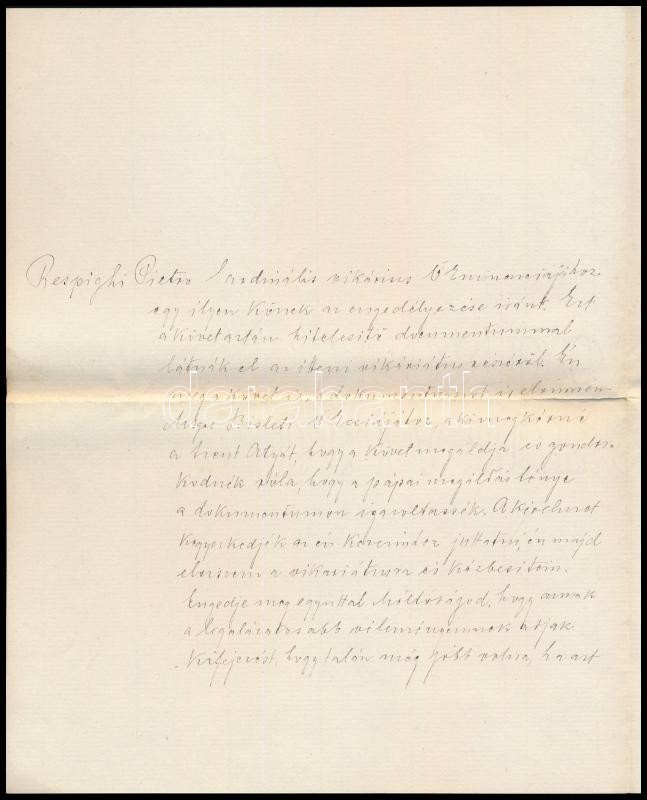 Respighi Pietro Cardinális vikárius Ő Eminenciájához
egy ilyen kőnek az engedélyezése iránt. Ezt
a követ aztán hitelesitő documentummal
látnák el az itteni vikáriátus részéről. Én
meg a követ a dokumentumot is elvinném
Msgre Bisleti Ő Exciájához, aki megkérné
a Szent Atyát, hogy a követ megáldja és gondos-
kodnék róla, hogy a pápai megáldás ténye
a dokumentumon igazoltassék. A kérelmet
kegyeskedjék az én kezeimhez juttatni, én majd
elviszem a vikariátusra és kézbesitem.
Engedje meg egyuttal Méltóságod, hogy annak
a legalázatosabb véleményemnek adjak
kifejezést, hogy talán még jobb volna, ha azt
darabanth